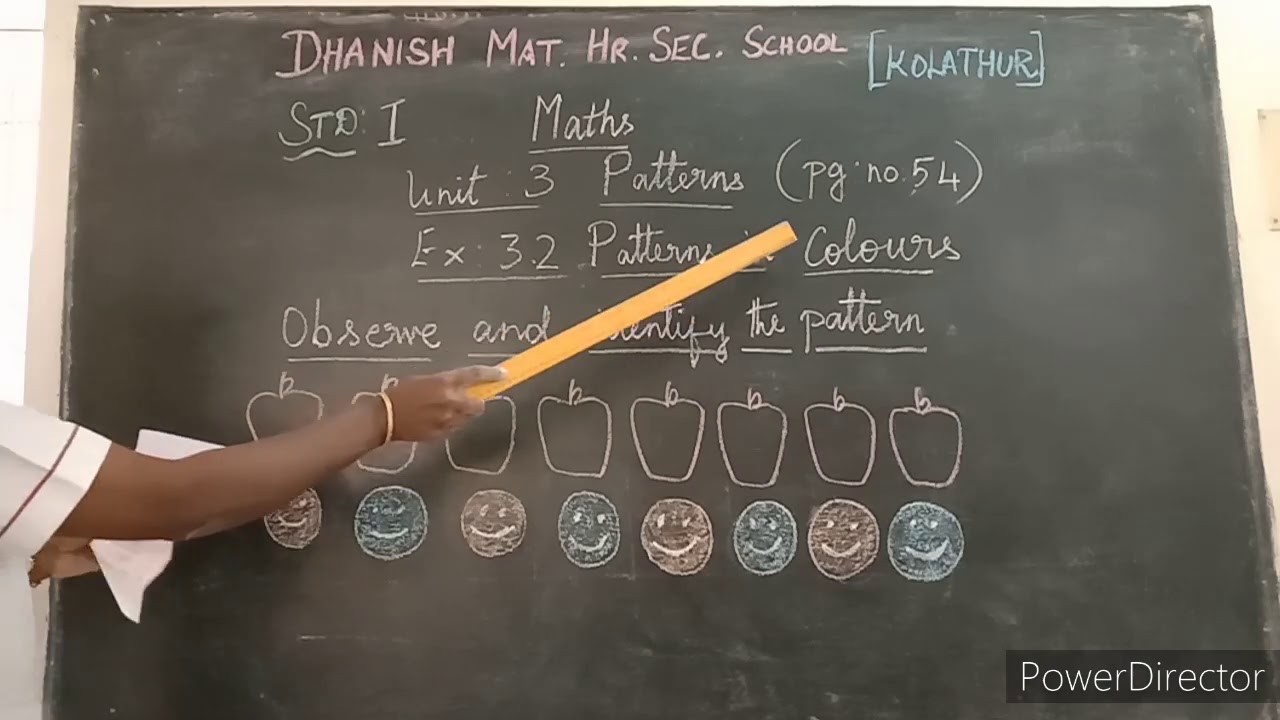 DHANISH MAT. HR. SEC. SCHOOL [KOLATHUR]
STD: I Maths
Unit : 3 Patterns (pg. no. 54)
Ex : 3.2 Patterns in Colours
Observe and identify the pattern
PowerDirector